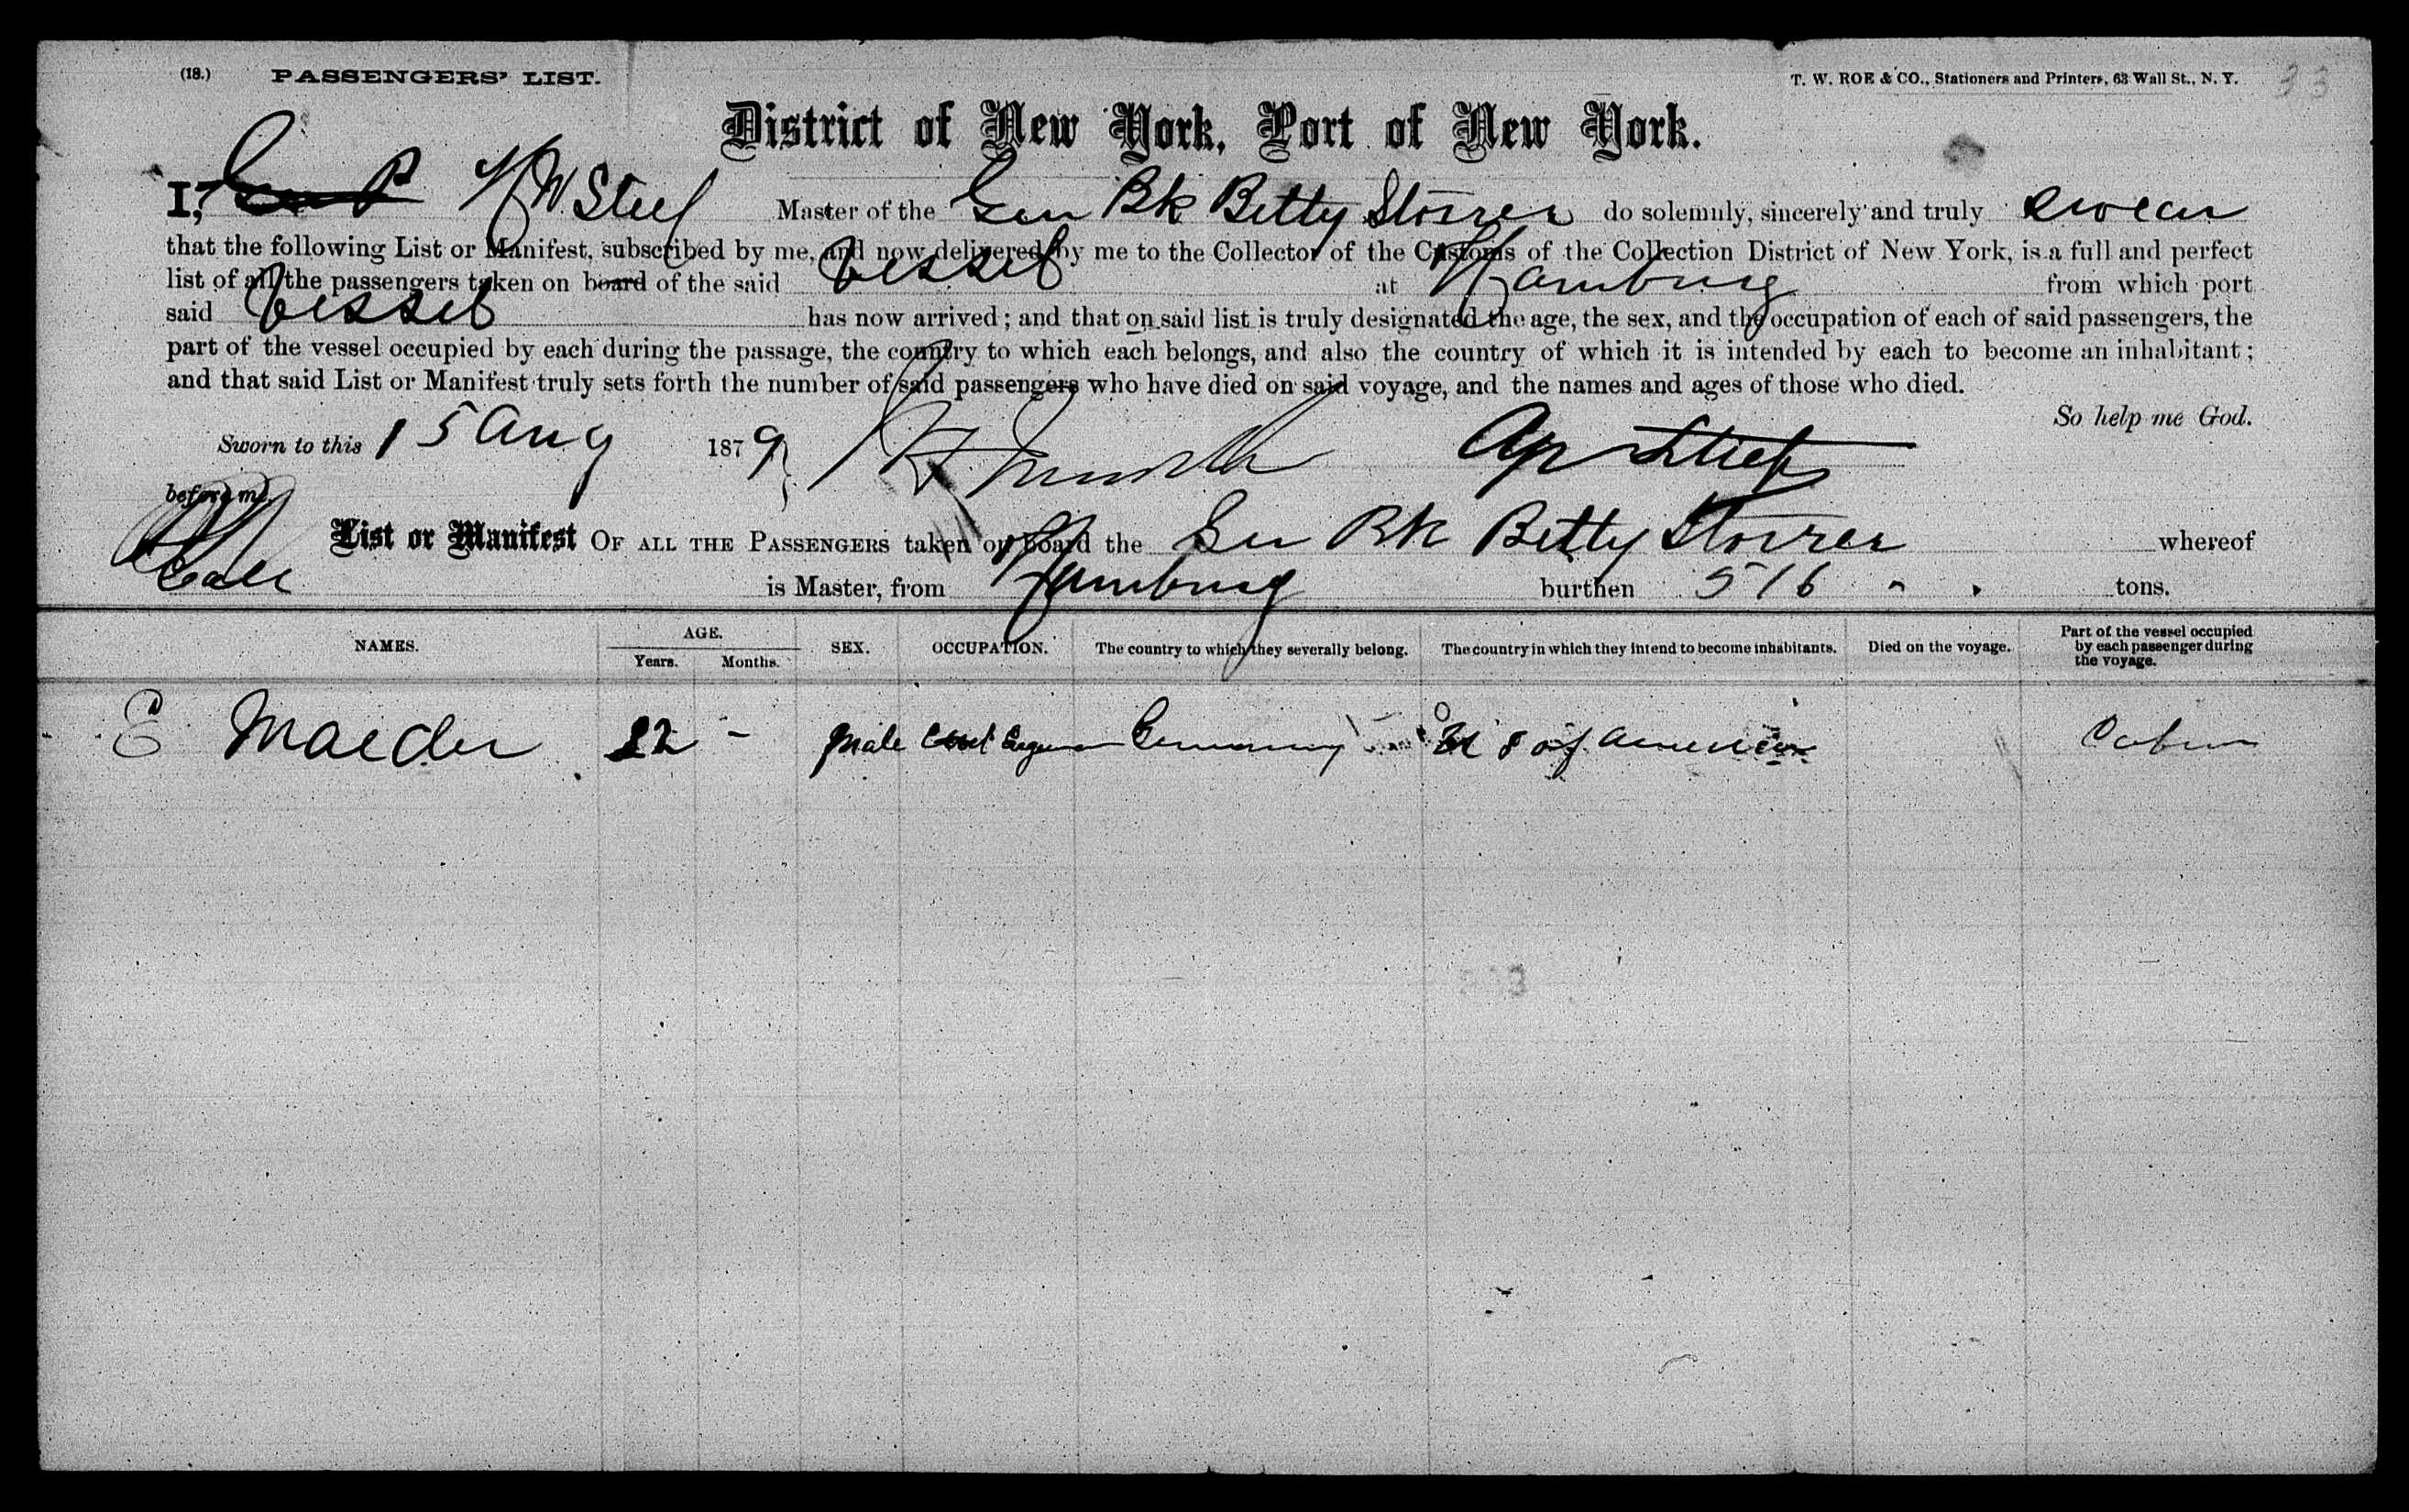 (18.) PASSENGERS' LIST. T. W. ROE & CO., Stationers and Printers, 63 Wall St., N. Y. 33
District of New York, Port of New York.
I, Master of the Ger Bk Betty Storrer do solemnly, sincerely and truly swear
that the following List or Manifest, subscribed by me, and now delivered by me to the Collector of the Customs of the Collection District of New York, is a full and perfect
list of all the passengers taken on board of the said Vessel at Hamburg from which port
said Vessel has now arrived; and that on said list is truly designated the age, the sex, and the occupation of each of said passengers, the
part of the vessel occupied by each during the passage, the country to which each belongs, and also the country of which it is intended by each to become an inhabitant;
and that said List or Manifest truly sets forth the number of said passengers who have died on said voyage, and the names and ages of those who died.
So help me God.
Sworn to this 15 Aug 1879
before me
List or Manifest OF ALL THE PASSENGERS taken on board the Ger Bk Betty Storrer whereof
is Master, from Hamburg burthen 516 tons.
NAMES. AGE. Years. Months. SEX. OCCUPATION. The country to which they severally belong. The country in which they intend to become inhabitants. Died on the voyage. Part of the vessel occupied by each passenger during the voyage.
E Maeder 22 - Male Germany U S of America Cabin